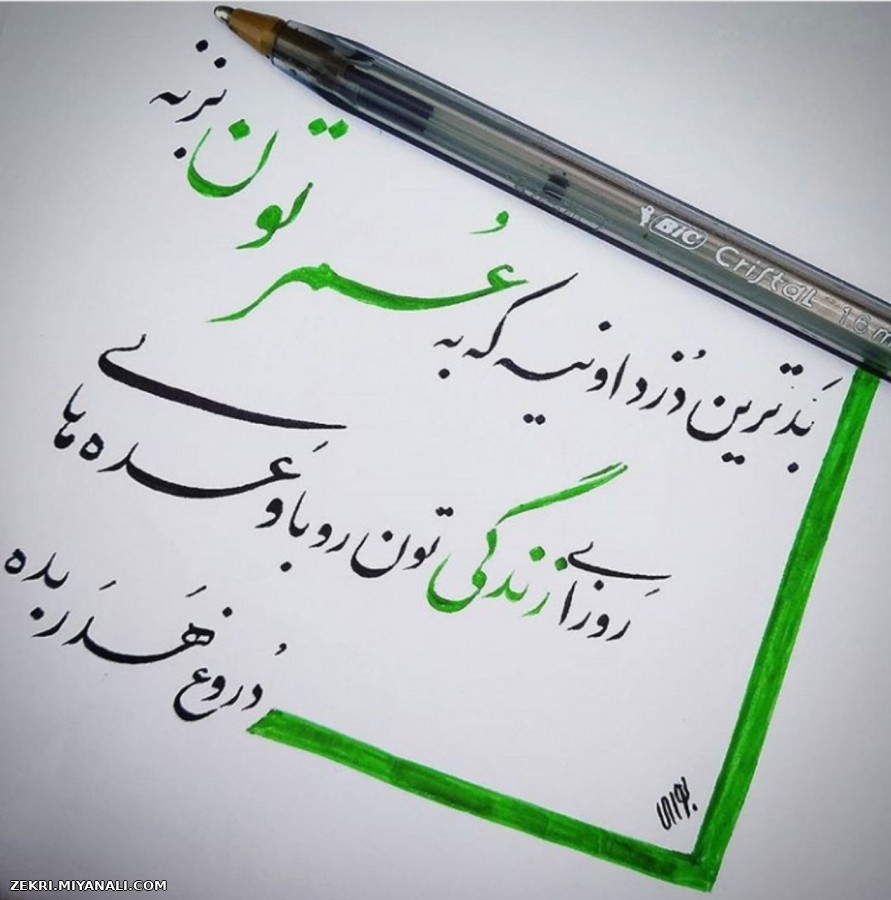 بَدترین دُزد اونیه که به عُمر تون بزنه
رَوزای زندگی تون رو با وَعده های
دُروغ هَدَر بده
BIC Cristal
ZEKRI.MIYANALI.COM